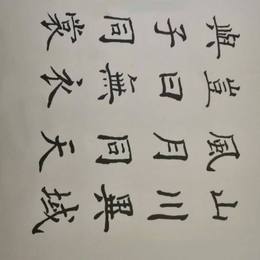 山川異域
風月同天
豈曰無衣
與子同裳